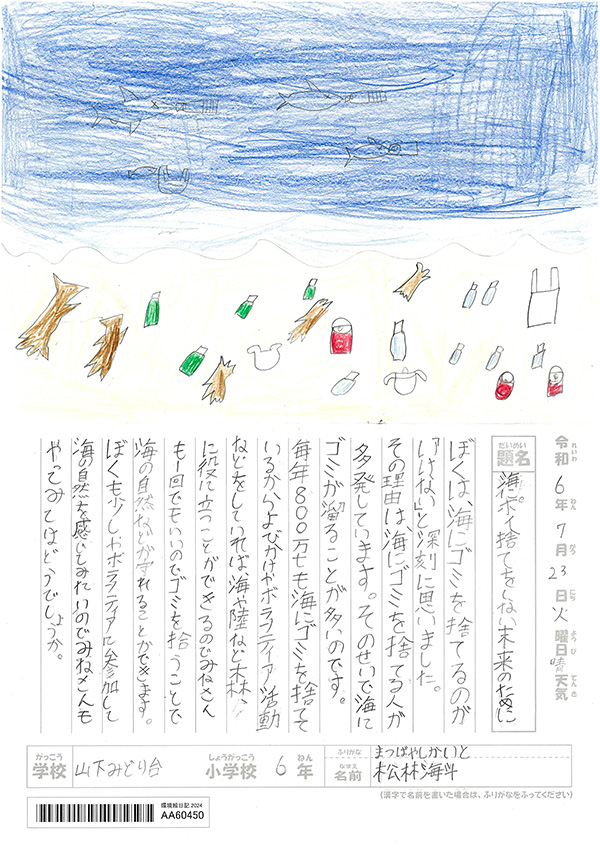 令和6年7月23日火曜日晴天気
れいわ ねん がつ にち ようび てんき
だいめい
題名
海にポイ捨てをしない未来のために
ぼくは、海にゴミを捨てるのが
いけない」と深刻に思いました。
その理由は、海にゴミを捨てる人が
多発しています。そのせいで海に
ゴミが溜ることが多いのです。
毎年800万tも海にゴミを捨てて
いるからよびかけやボランティア活動
などをしていれば海や陸など森林、
に役に立つことができるのでみなさん
も一回でもいいのでゴミを拾うことで
海の自然などが守れることができます。
ぼくも少しやボランティアに参加して
海の自然を感いてみたいのでみなさんも
やってみてはどうでしょうか。
がっこう
学校
山下みどり台
しょうがっこう
小学校
6年
ねん
ふりがな
まつばやしかいと
なまえ
名前
松林海斗
(漢字で名前を書いた場合は、ふりがなをふってください)
環境絵日記 2024
AA60450